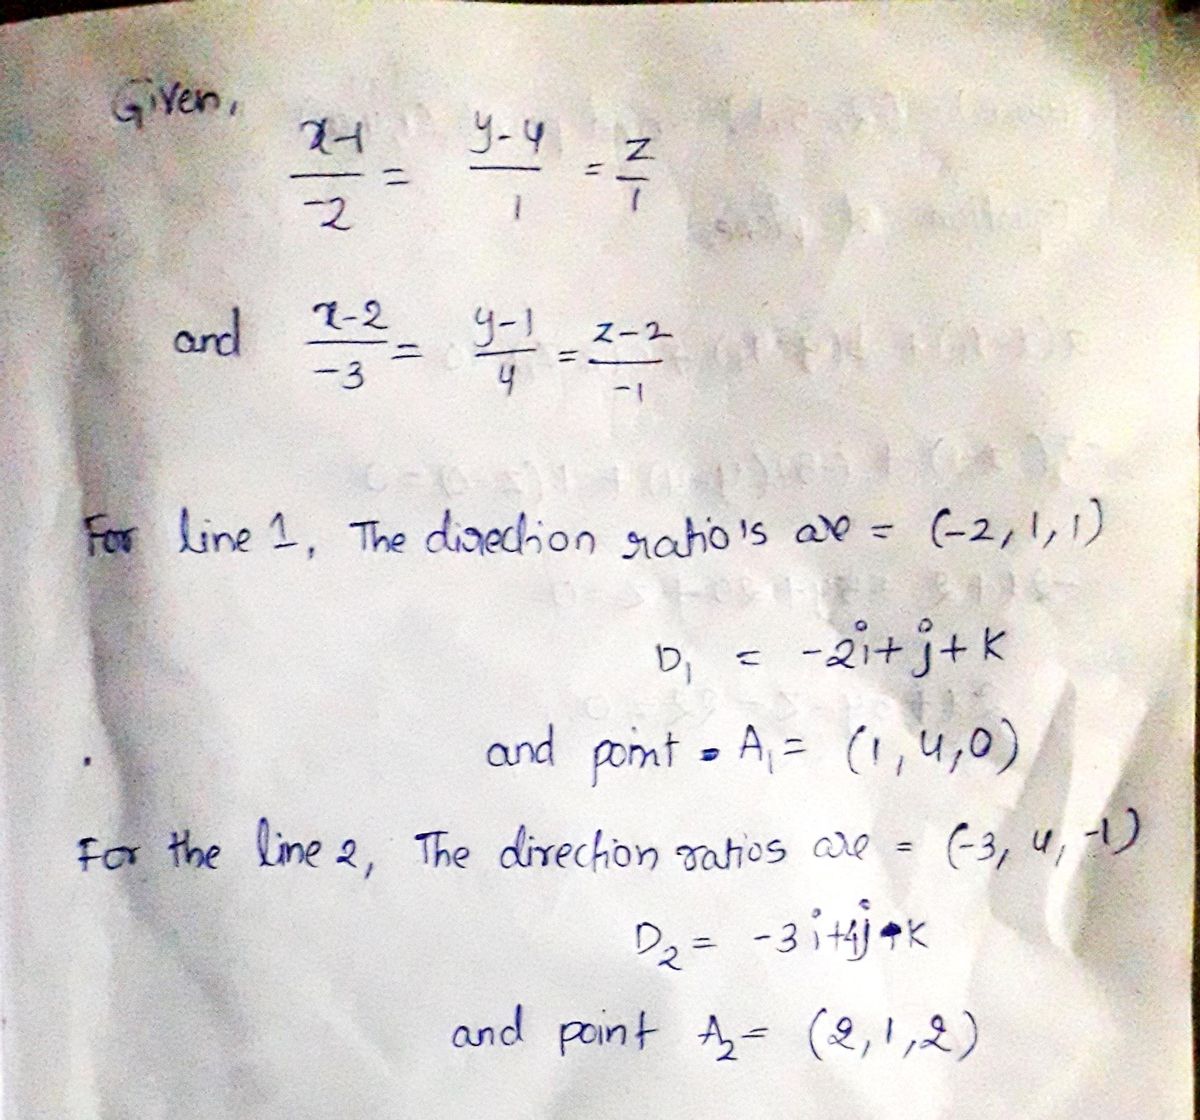 Given,
x-1/-2 = y-4/1 = z/1
and x-2/-3 = y-1/4 = z-2/-1
For line 1, The direction ratio's are = (-2, 1, 1)
D₁ = -2i + j + k
and point = A₁ = (1, 4, 0)
For the line 2, The direction ratios are = (-3, 4, -1)
D₂ = -3i+4j-k
and point A₂ = (2, 1, 2)